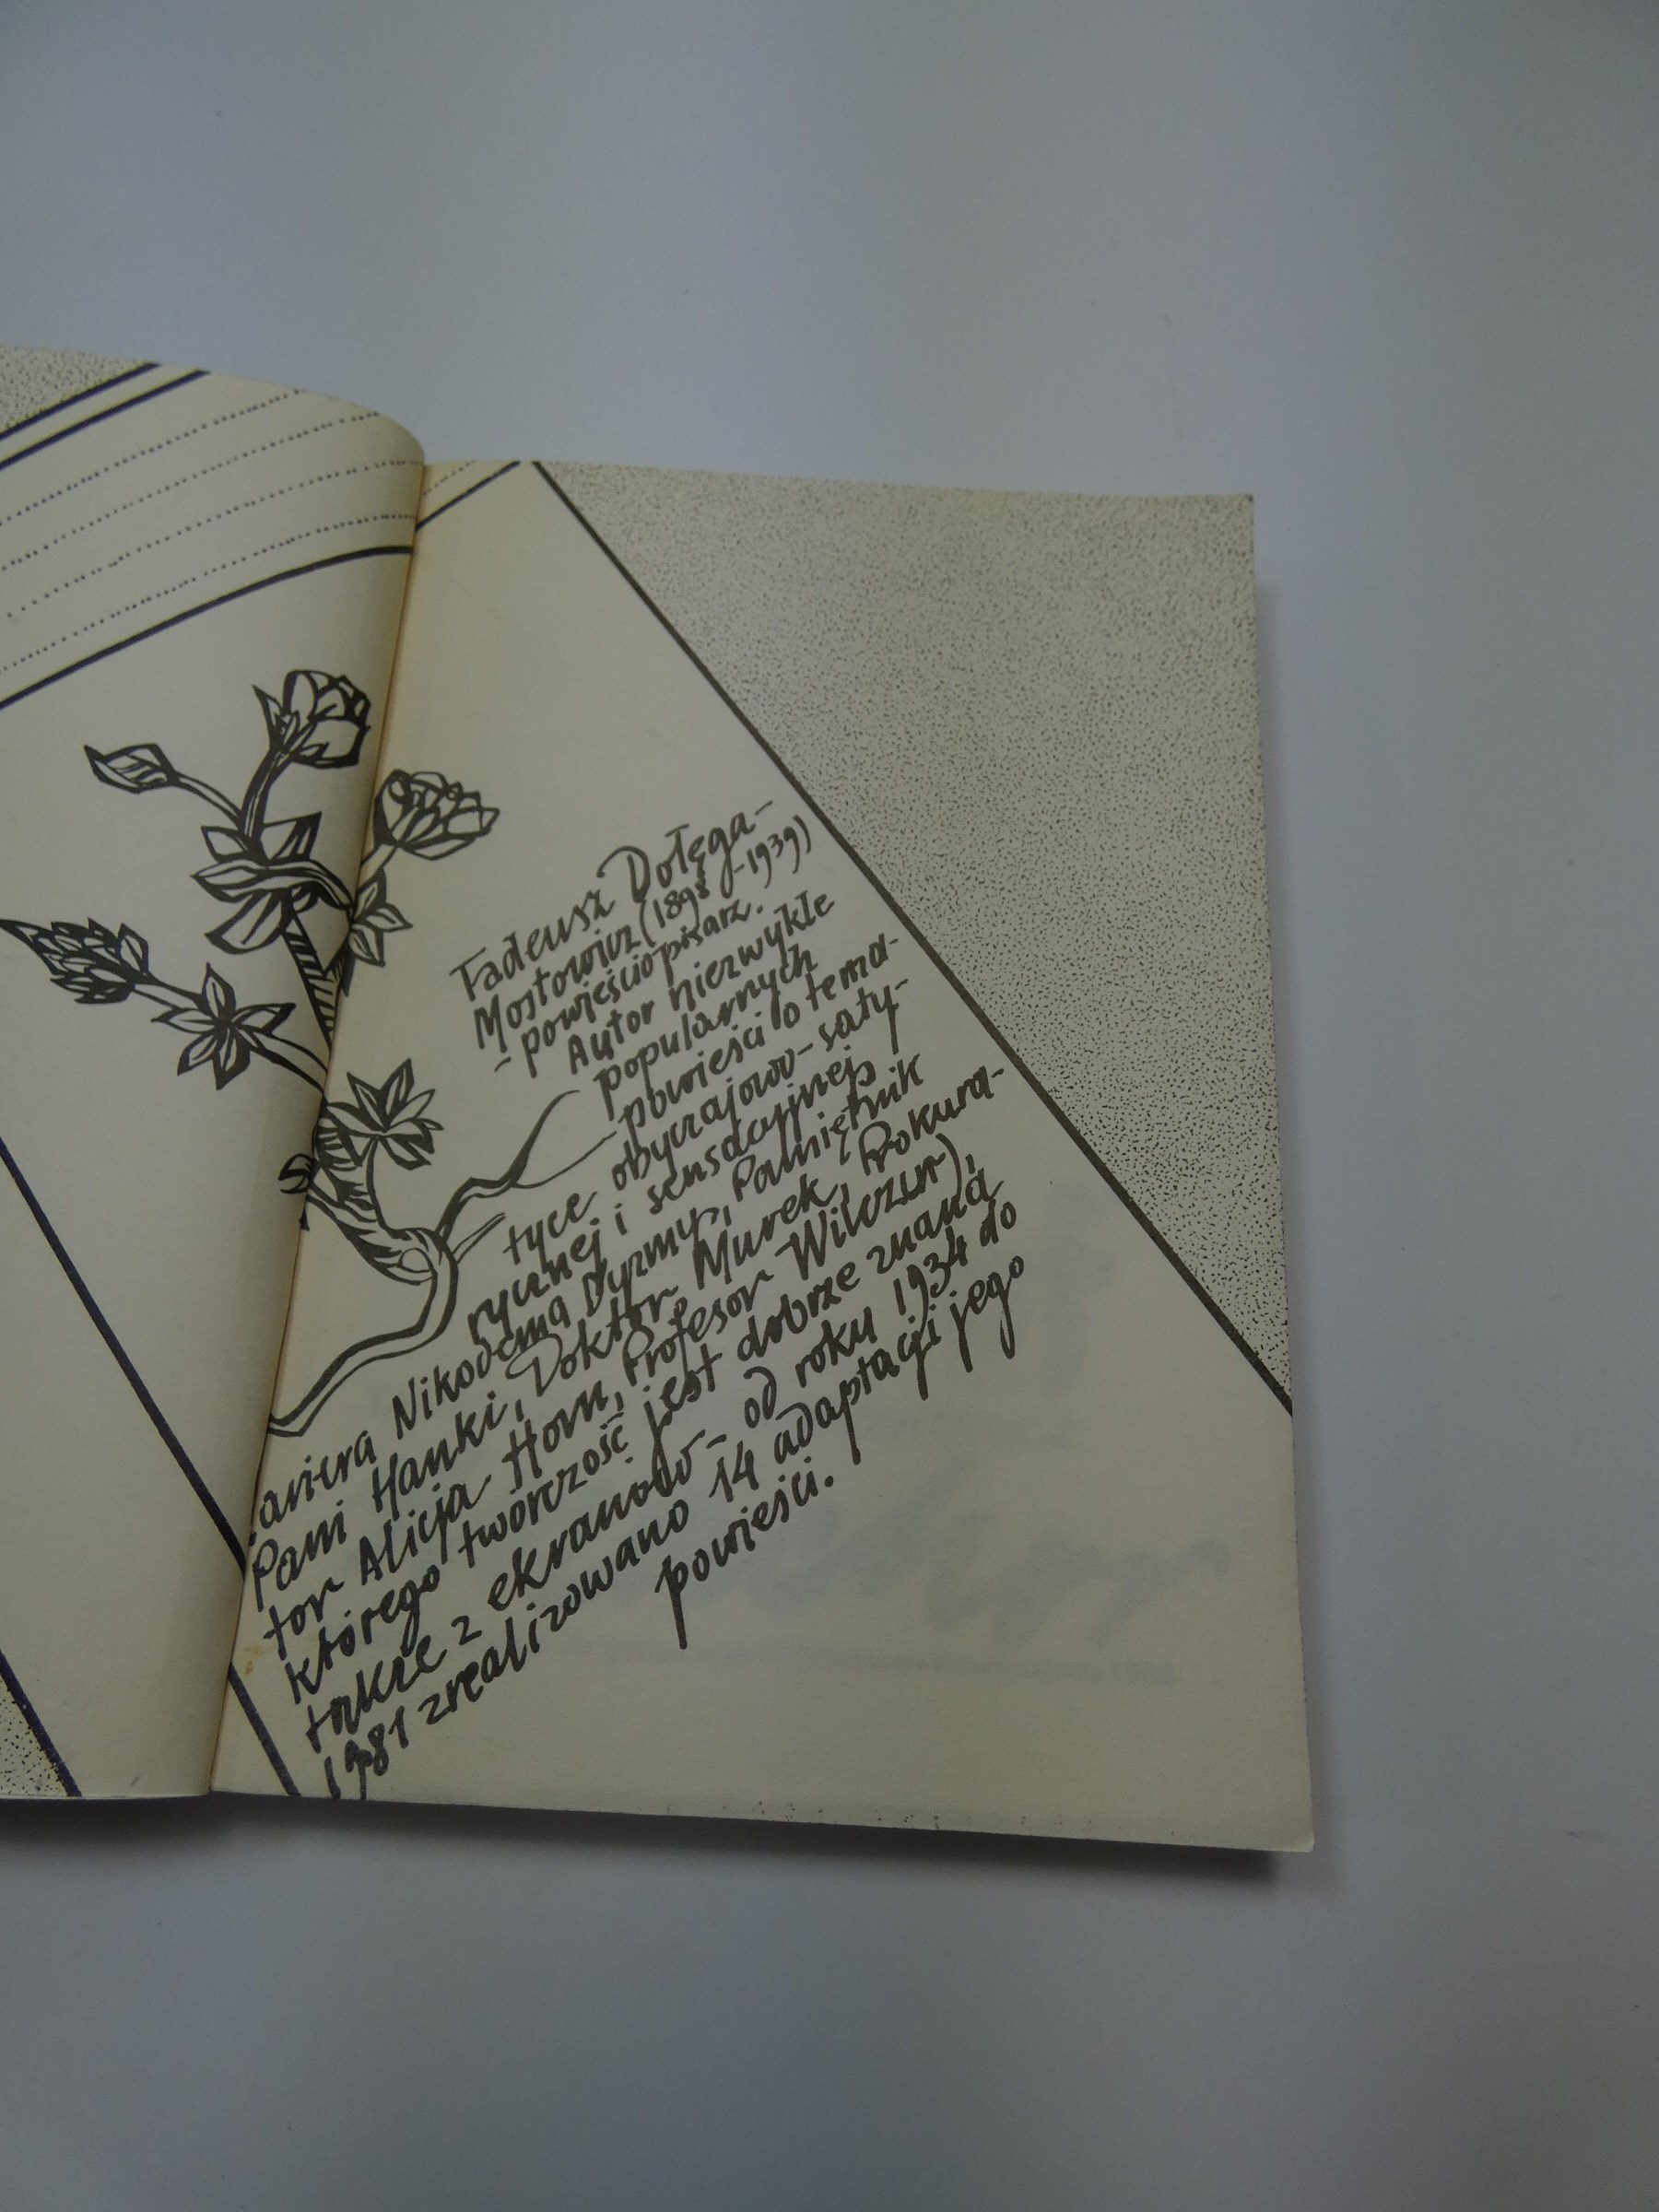 Tadeusz Dołęga-
Mostowicz (1898-1939)
- powieściopisarz.
Autor niezwykle
popularnych
powieści o tema-
tyce obyczajowo-saty-
rycznej i sensacyjnej
ariera Nikodema Dyzmy, Pamiętnik
Pani Hanki, Doktor Murek, Prokura-
tor Alicja Horn, Profesor Wilczur),
którego twórczość jest dobrze znana
także z ekranów - od roku 1934 do
1981 zrealizowano 14 adaptacji jego
powieści.